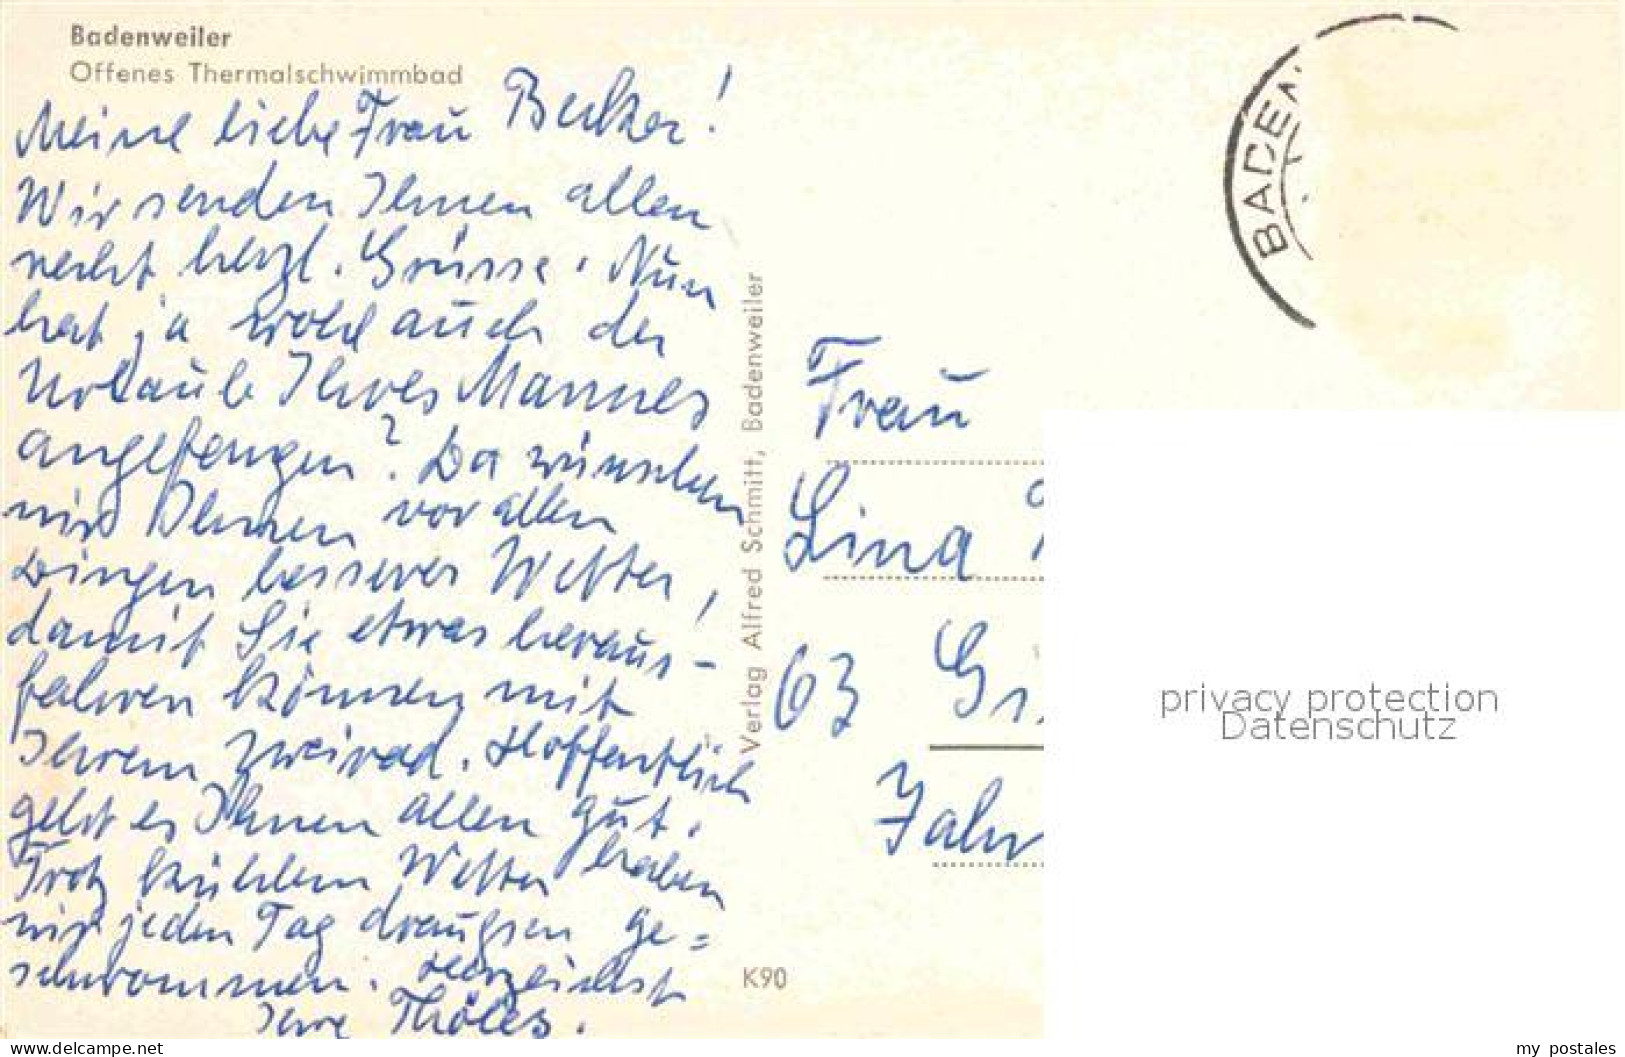 Badenweiler
Offenes Thermalschwimmbad
Meine liebe Frau Becker!
Wir senden Ihnen allen
recht herzl. Grüsse. Nun
hat ja wohl auch der
Urlaub Ihres Mannes
angefangen? Da wünschen
wir Ihnen vor allen
Dingen besseres Wetter,
damit Sie etwas heraus-
fahren können mit
Ihrem Zweirad. Hoffentlich
geht es Ihnen allen gut.
Trotz kühlem Wetter haben
wir jeden Tag draußsen ge=
schwommen. Herzlichst
Ihre
Verlag Alfred Schmitt, Badenweiler
K90
BADEN
Frau
Lina
63 Gi
Jahn
privacy protection
Datenschutz
www.delcampe.net
my_postales